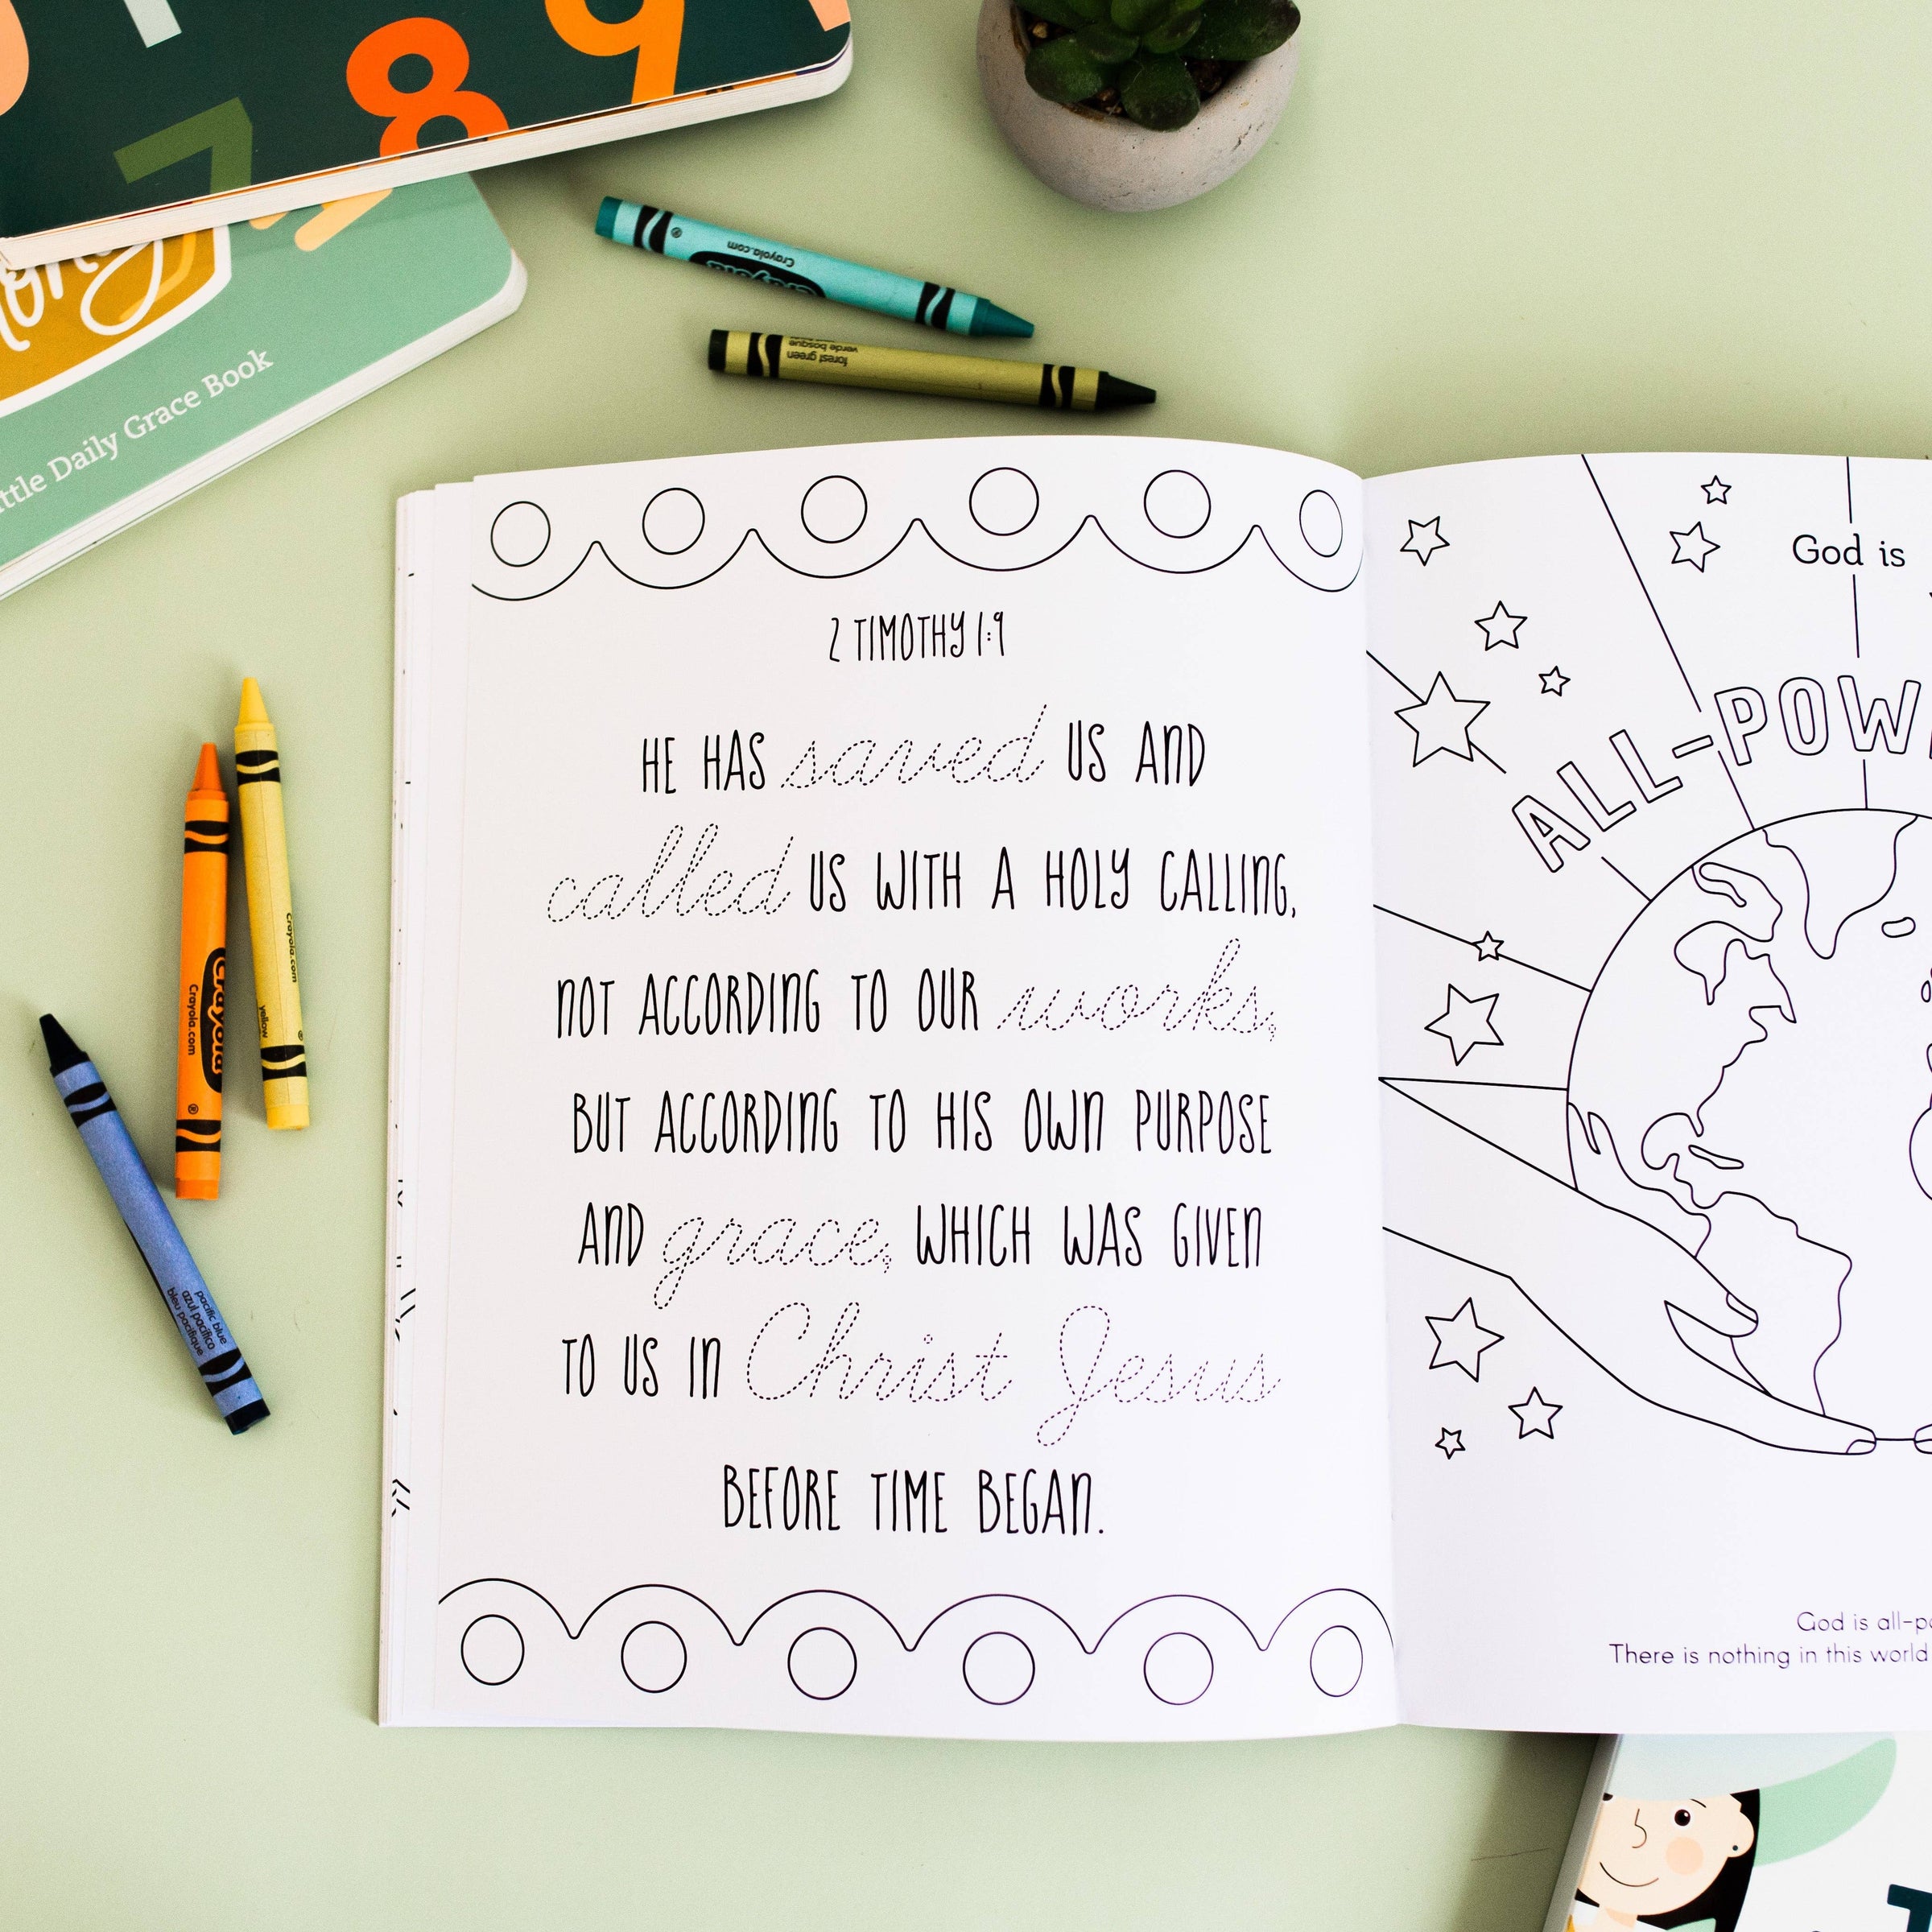 7 8 9
Daily Grace Book
Crayola.com
Crayola
forest green
verde bosque
Crayola.com
Crayola
Crayola.com
yellow
pacific blue
azul pacífico
bleu pacifique
2 TIMOTHY 1:9
HE HAS saved US AND
called US WITH A HOLY CALLING,
NOT ACCORDING TO OUR works,
BUT ACCORDING TO HIS OWN PURPOSE
AND grace, WHICH WAS GIVEN
TO US IN Christ Jesus
BEFORE TIME BEGAN.
God is
ALL-POW
God is all-po
There is nothing in this world